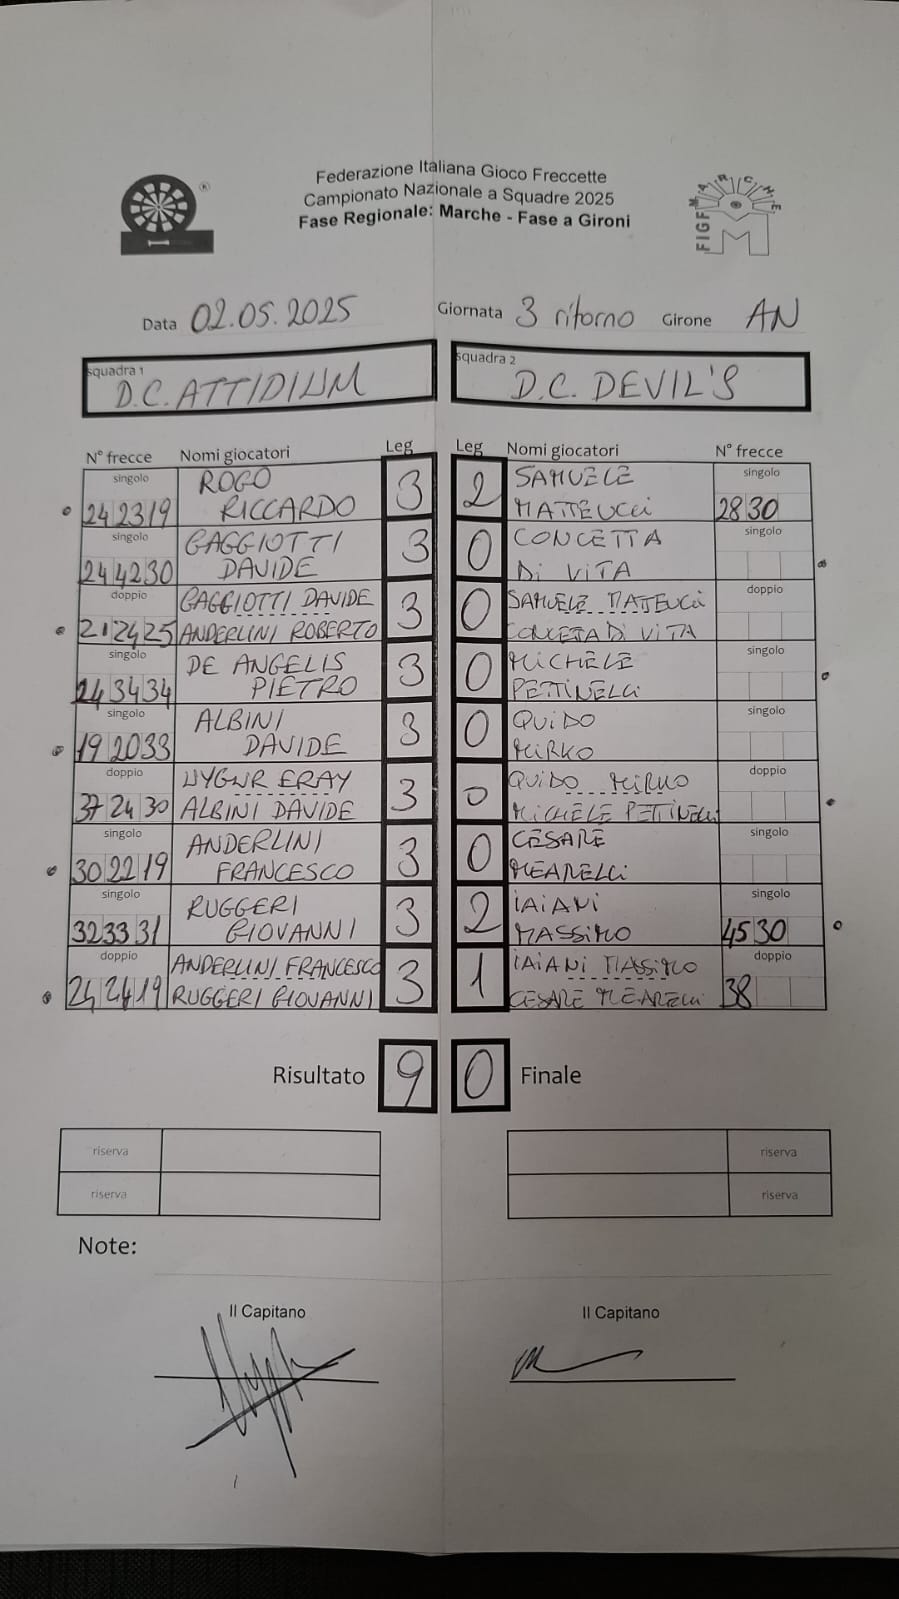 Federazione Italiana Gioco Freccette
Campionato Nazionale a Squadre 2025
Fase Regionale: Marche - Fase a Gironi
FIGF MARCHE
M
Data 02.05.2025 Giornata 3 ritorno Girone AN
squadra 1 D.C. ATTIDIUM
squadra 2 D.C. DEVIL'S
N° frecce Nomi giocatori Leg Leg Nomi giocatori N° frecce
singolo ROGO 3 2 SAMUELE singolo
24 23 19 RICCARDO MATTEUCCi 28 30
singolo GAGGIOTTI 3 0 CONCETTA singolo
24 42 30 DAVIDE Di ViTA
doppio GAGGIOTTI DAVIDE 3 0 SAMUELE MATTEUCCi doppio
21 24 25 ANDERLINI ROBERTO CONCETA Di ViTA
singolo DE ANGELIS 3 0 MiCHELE singolo
24 34 34 PIETRO PETTiNELLi
singolo ALBINI 3 0 QUiDO singolo
19 20 33 DAVIDE MiRKO
doppio UYGUR ERAY 3 0 QUiDO MiRKO doppio
37 24 30 ALBINI DAVIDE MiCHELE PETTiNELLi
singolo ANDERLINI 3 0 CESARE singolo
30 22 19 FRANCESCO MEARELLi
singolo RUGGERI 3 2 iAiANi singolo
32 33 31 GIOVANNI MASSiMO 45 30
doppio ANDERLINI FRANCESCO 3 1 iAiANi MASSiMO doppio
24 24 19 RUGGERI GIOVANNI CESARE MEARELLi 38
Risultato 9 0 Finale
riserva riserva
riserva riserva
Note:
Il Capitano Il Capitano